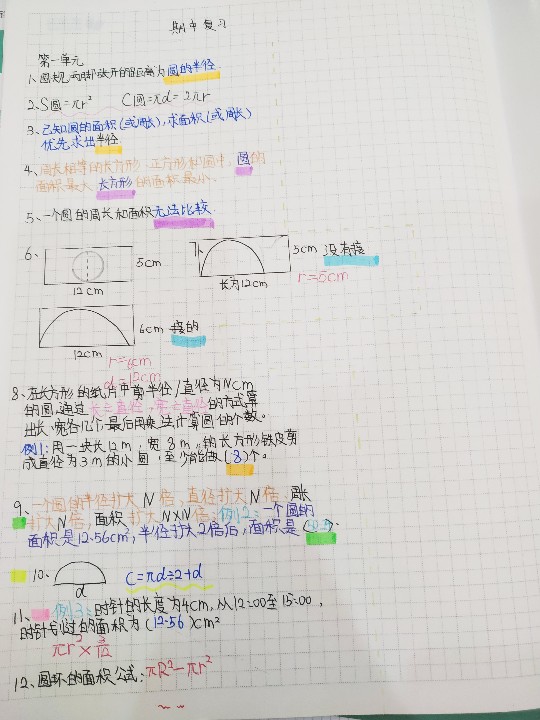 期中复习
第一单元
1、圆规两脚张开的距离为圆的半径
2、S圆=πr² C圆=πd=2πr
3、已知圆的面积(或周长),求面积(或周长)
优先求出半径
4、周长相等的长方形、正方形和圆中,圆的
面积最大,长方形的面积最小.
5、一个圆的周长和面积无法比较
6、
5cm
12cm
5cm 没有接
长为12cm
r=5cm
6cm 接的
12cm
r=6cm
d=12cm
8、在长方形的纸片中剪半径/直径为Ncm
的圆,通过长÷直径,宽÷直径的方式算
出长、宽各几个,最后用乘法计算圆的个数。
例1:用一块长12m,宽8m的长方形铁皮剪
成直径为3m的小圆,至少能做(8)个。
9、一个圆的半径扩大N倍、直径扩大N倍、周长
扩大N倍,面积扩大N×N倍;例2:一个圆的
面积是12.56cm,半径扩大2倍后,面积是( )
10、
d
C=πd÷2+d
11、例3:时针的长度为4cm,从12:00至15:00,
时针划过的面积为(12.56)cm²
πr²×3/12
12、圆环的面积公式:πR²-πr²